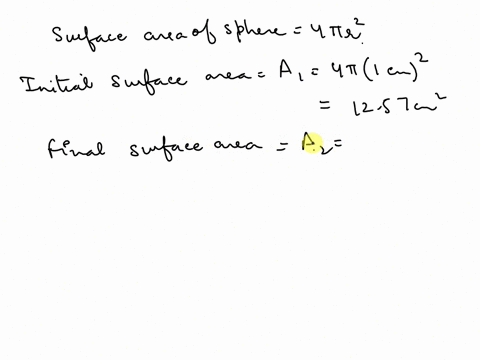 Surface area of sphere = 4πr².
Initial surface area = A₁ = 4π(1 cm)²
= 12.57 cm²
Final surface area = A₂ =